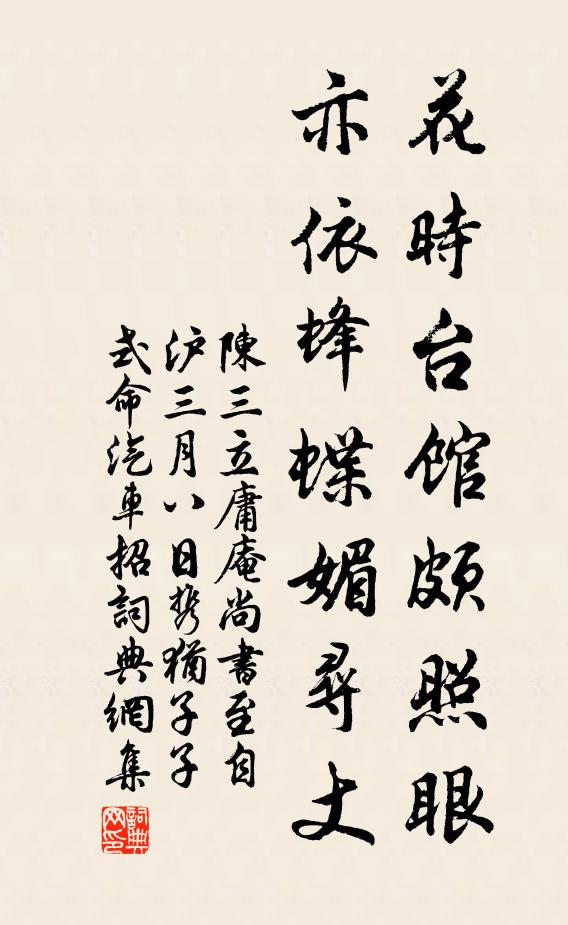 花時台館頗照眼
亦依蜂蝶媚尋丈
陳三立庸庵尚書至自
沪三月八日携猶子子
式命汽車招詞典網集
詞典网印